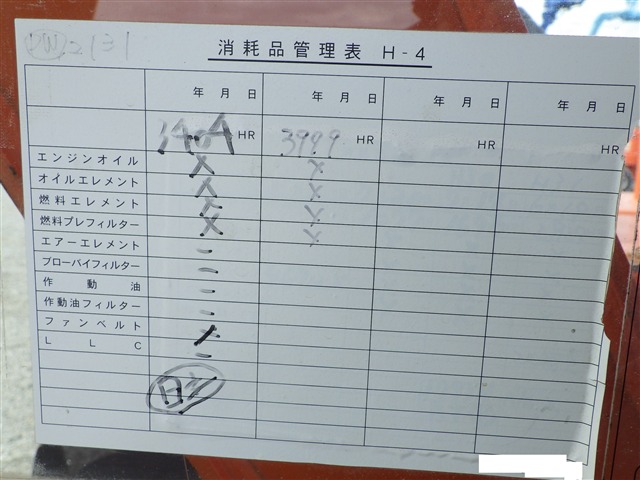 2131
消耗品管理表 H-4
年 月 日 年 月 日 年 月 日 年 月 日
HR 3999 HR HR HR
エンジンオイル X X
オイルエレメント X X
燃料エレメント X X
燃料プレフィルター X X
エアーエレメント -
ブローバイフィルター -
作動油 -
作動油フィルター -
ファンベルト
LLC -